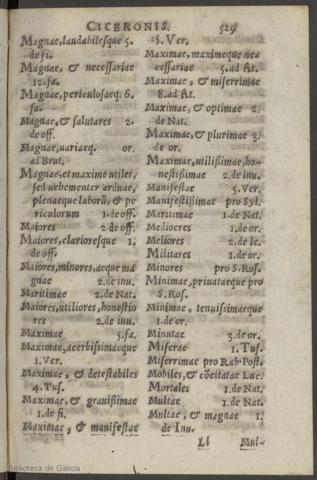 CICERONIS. 529
Magnae, laudabilesque 5.
de fi.
Magnae, & necessariae
12. fa.
Magnae, periculosaeq; 6.
fa.
Magnae, & salutares 2.
de off.
Magnae, uariaeq. or.
ad Brut.
Magnae, et maxime utiles,
sed uehementer arduae,
plenaeque laborũ, & pe
riculorum 1. de off.
Maiores 2. de off.
Maiores, clarioresque 1.
de off.
Maiores, minores, aeque ma
gnae 2. de inu.
Maritimae 2. de Nat.
Maiores, utiliores, honestio
res 2. de inu.
Maximae 5. fa.
Maximae, acerbissimaeque
1. Ver.
Maximae, & detestabiles
4. Tus.
Maximae, & grauißimae
1. de fi.
Maximae, & manifestae
5. Ver.
Maximae, maximeque ne
cessariae 5. ad At.
Maximae, & miserrimae
8. ad At.
Maximae, & optimae 2.
de Nat.
Maximae, & plurimae 3.
de or.
Maximae, utilißimae, ho-
nestißimae 2. de inu.
Manifestae 5. Ver.
Manifestißimae pro Syl.
Maritimae 1. de Nat.
Mediocres 1. de or.
Meliores 2. de le.
Militares 1. de or.
Minores pro S. Ros.
Minimae, priuataeque pro
S. Ros.
Minimae, tenuissimaeque
1. de or.
Minutae 3. de or.
Miserae 1. Tus.
Miserrimae pro Rab. Post.
Mobiles, & cõcitatae Luc.
Mortales 1. de Nat.
Multae 1. de Nat.
Multae, & magnae 1.
de Inu.
Ll Mul-
Biblioteca de Galicia